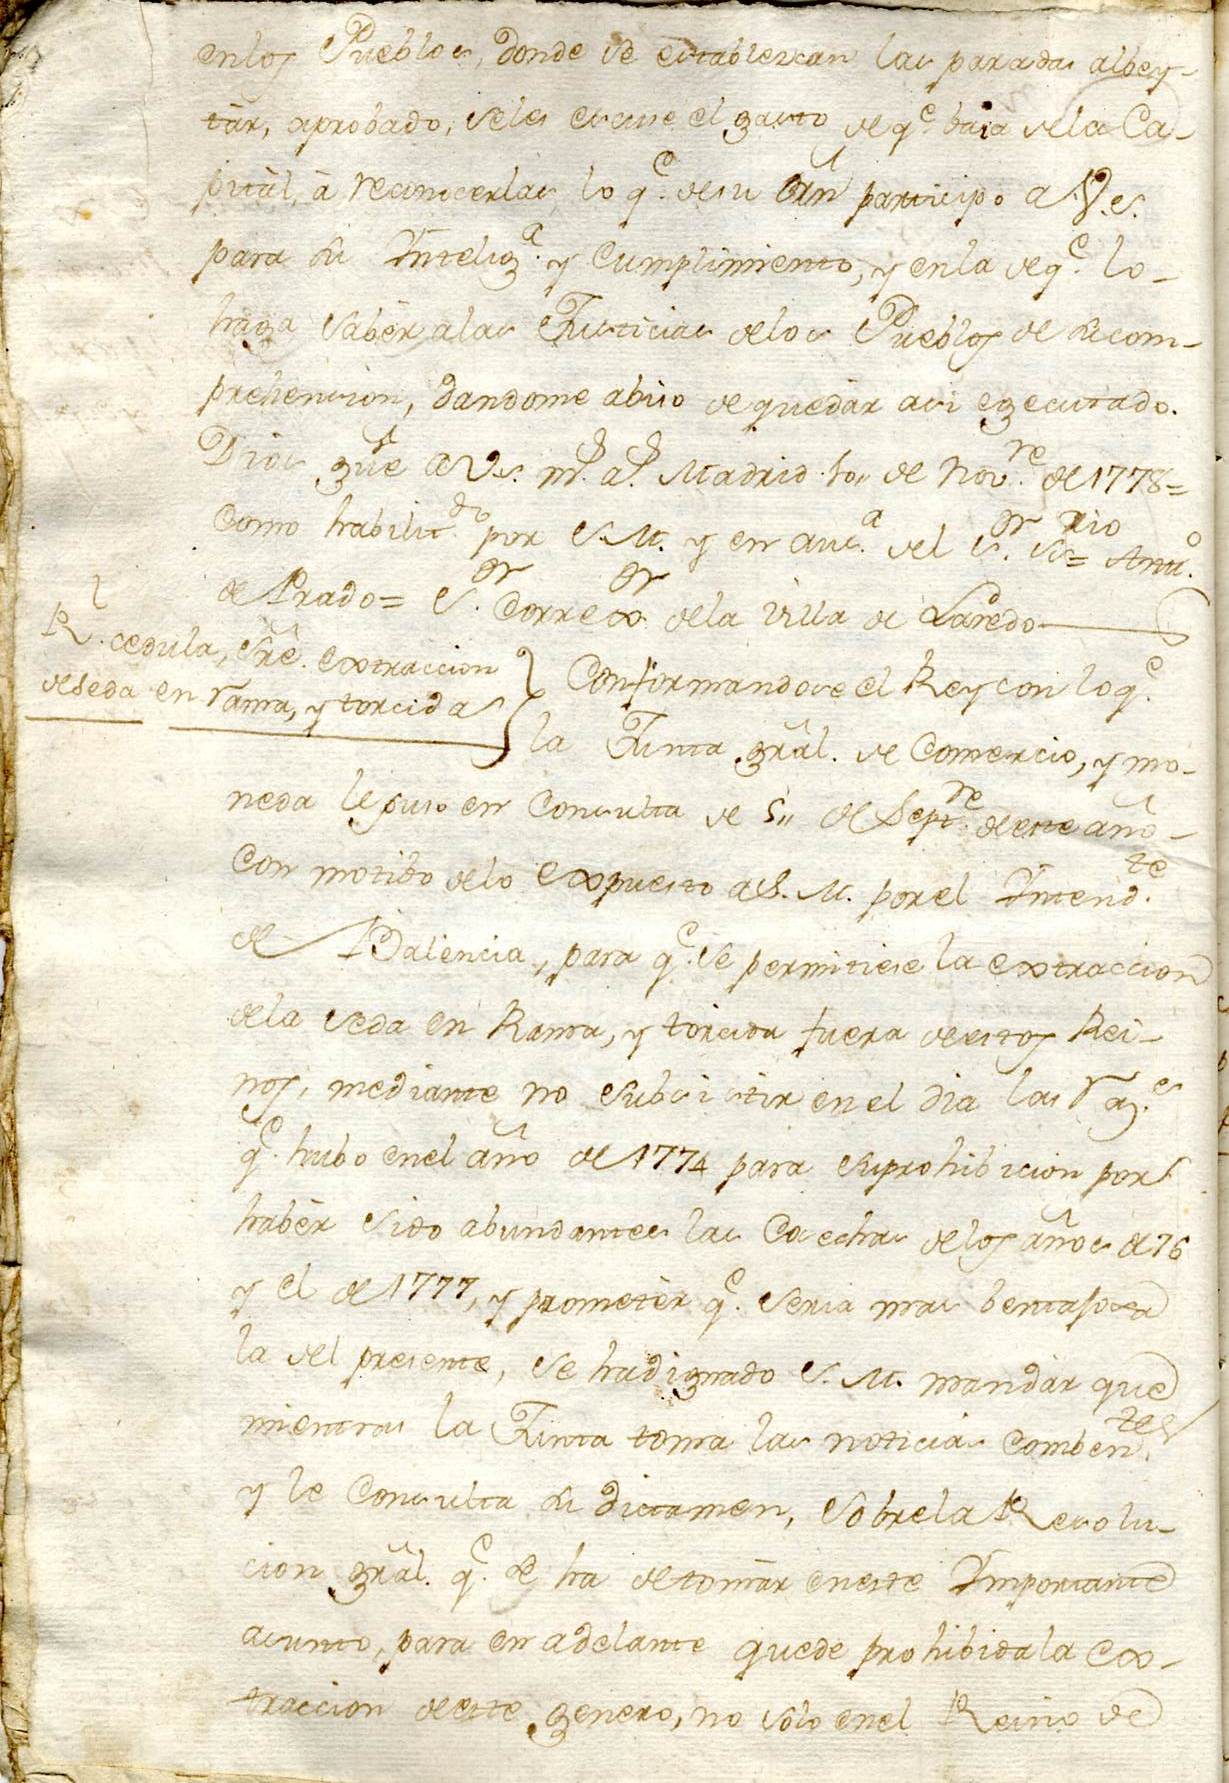 enlos Pueblos, donde se establezcan las paradas albey-
tàr, aprobado, seles escuse el gasto de q.e baia dela Ca-
pitàl, à reconocerlas lo q.e desu orñ participo a V.S.
para su Intelig.a y Cumplimiento, y enla de q.e lo-
haga sabèr alas Justicias delos Pueblos de sucom-
prehension, dandome abiso de quedàr asi egecutado.
Dios gũe a V.S. m.s a.s Madrid 10,, de Nov.re de 1778=
Como habilit.do por S.M. y en aus.a del S.or Srio= Antt.o
de Prado= S.or Correx.or dela Villa de Laredo
R.l cedula, sr̃e. extraccion
deseda en rama, y torcida
Conformandose el Rey con loq.e
la Junta gr̃al. de Comercio, y mo-
neda lepuso en Consulta de 5,, de Sept.re deeste año-
Con motibo delo expuesto aS.M. porel Intend.te
de Balencia, para q.e se permitiese la extraccion
dela seda en Rama, y torcida fuera deestos Rei-
nos, mediante no subsistir en el dia las raz.s
q.e hubo enel año de 1774 para suprohibicion por
habèr sido abundantes las Cosechas delos años de 76
y el de 1777, y prometèr q.e seria mas bentajosa
la del presente, se hadignado S.M. mandàr que
mientras la Junta toma las noticias Comben.tes
y le Consulta su dictamen, sobrela Resolu-
cion gr̃al. q.e se ha detomàr eneste Importante
asunto, para en adelante quede prohibidala ex-
traccion deeste genero, no solo enel Reino de